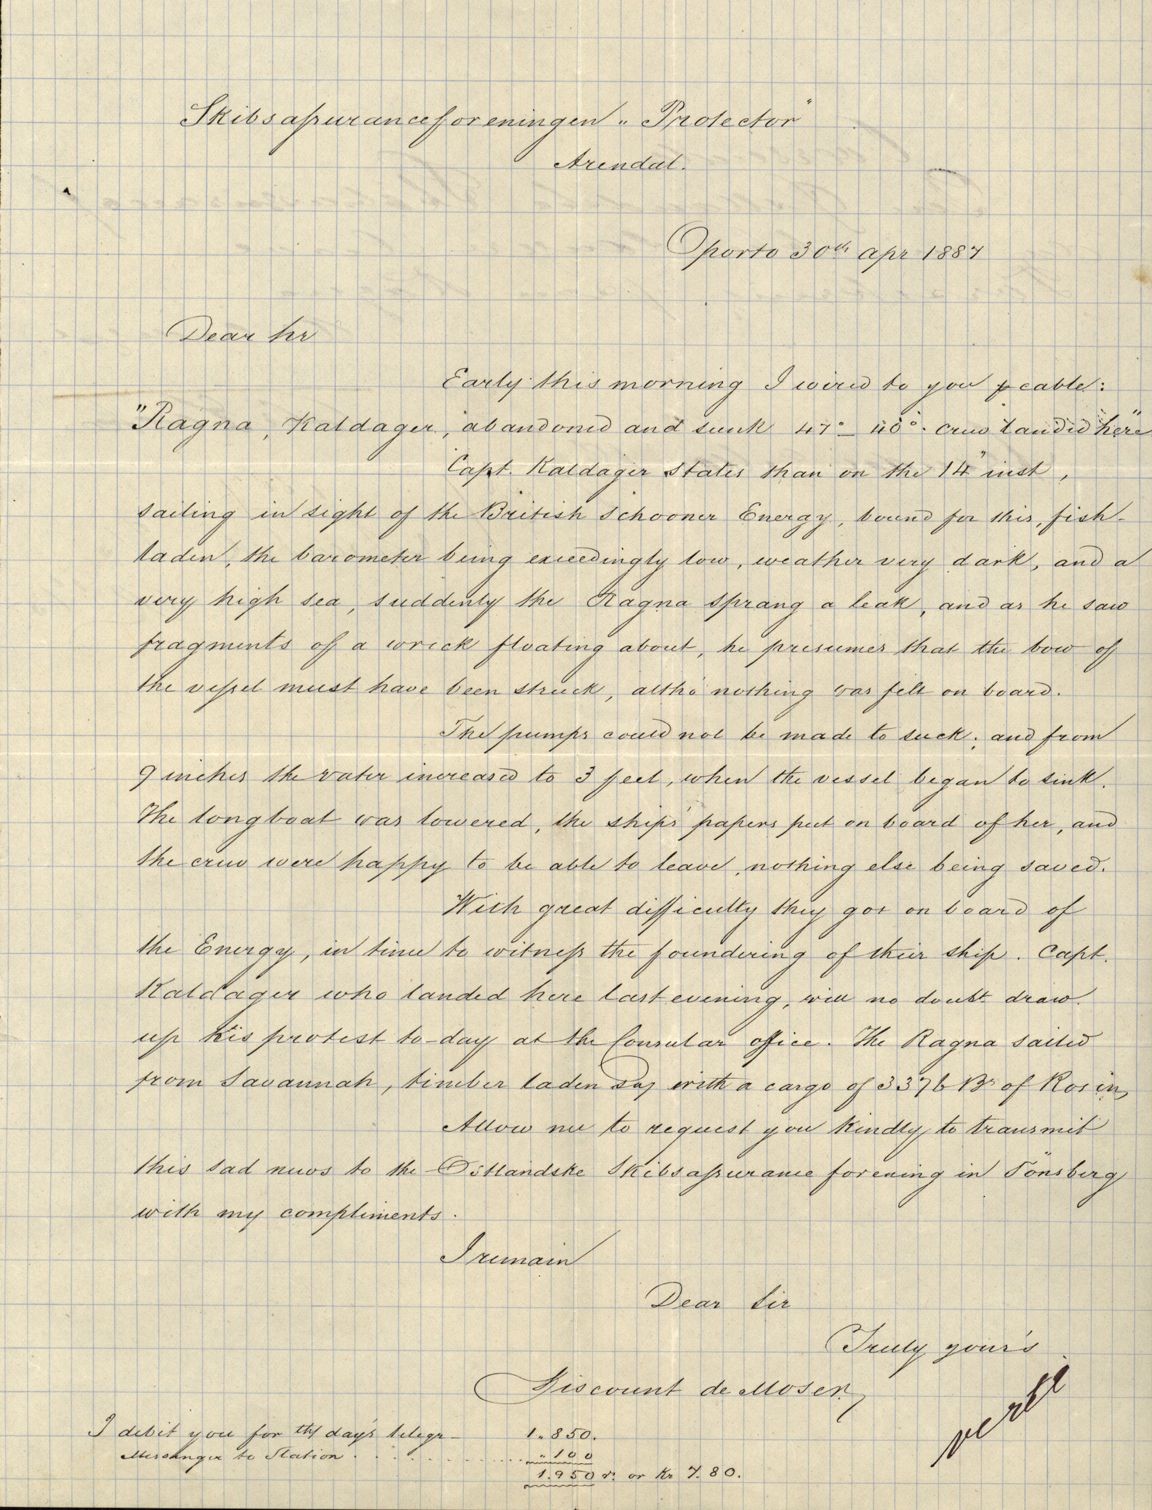 Skibsassuranceforeningen „Protector"
Arendal.
Oporto 30th Apr 1887
Dear Sir
Early this morning I wired to you p cable:
"Ragna, Kaldager, abandoned and sunk 47°– 40°. crew landed here"
Capt. Kaldager states than on the 14" inst,
sailing in sight of the British Schooner Energy, bound for this, fish-
laden, the barometer being exceedingly low, weather very dark, and a
very high sea, suddenly the Ragna sprang a leak, and as he saw
fragments of a wreck floating about, he presumes that the bow of
the vessel must have been struck, altho' nothing was felt on board.
The pumps could not be made to suck; and from
9 inches the water increased to 3 feet, when the vessel began to sink.
The longboat was lowered, the ships' papers put on board of her, and
the crew were happy to be able to leave, nothing else being saved.
With great difficulty they got on board of
the Energy, in time to witness the foundering of their ship. Capt.
Kaldager who landed here last evening, will no doubt draw
up his protest to-day at the Consular office. The Ragna sailed
from Savannah, timber laden say with a cargo of 3376 Bs of Rosin,
Allow me to request you kindly to transmit
this sad news to the Ostlandske Skibsassuranceforening in Tönsberg
with my compliments.
I remain
Dear Sir
Truly your's
Viscount de Moser,
I debit you for this day's telegr– 1.850.
Messenger to Station . . . . . . . . „ 100
1.950 rs. or Kr 7.80.